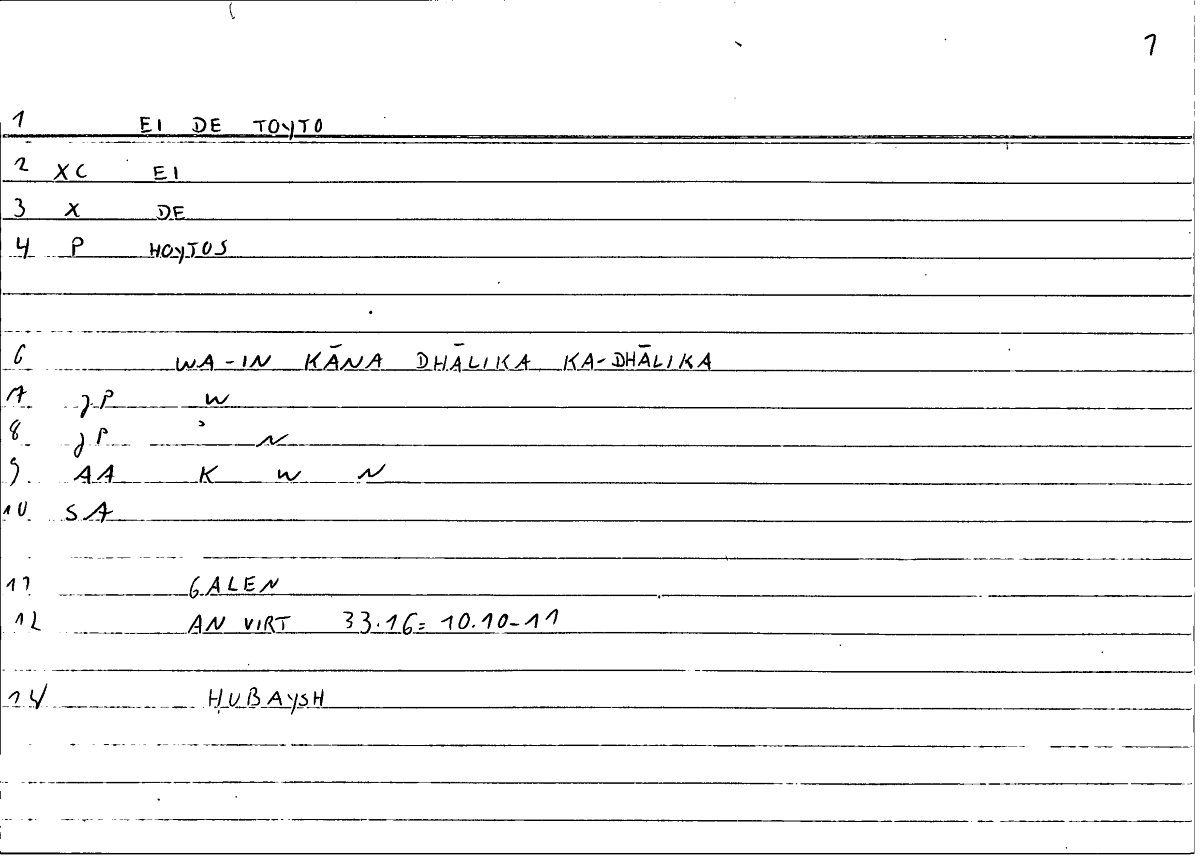 1
1 EI DE TOYTO
2 XC EI
3 X DE
4 P HOYTOS
6 WA-IN KĀNA DHĀLIKA KA-DHĀLIKA
7 JP W
8 JP ʾ N
9 AA K W N
10 SA
11 GALEN
12 AN VIRT 33.16= 10.10-11
14 ḤUBAYSH